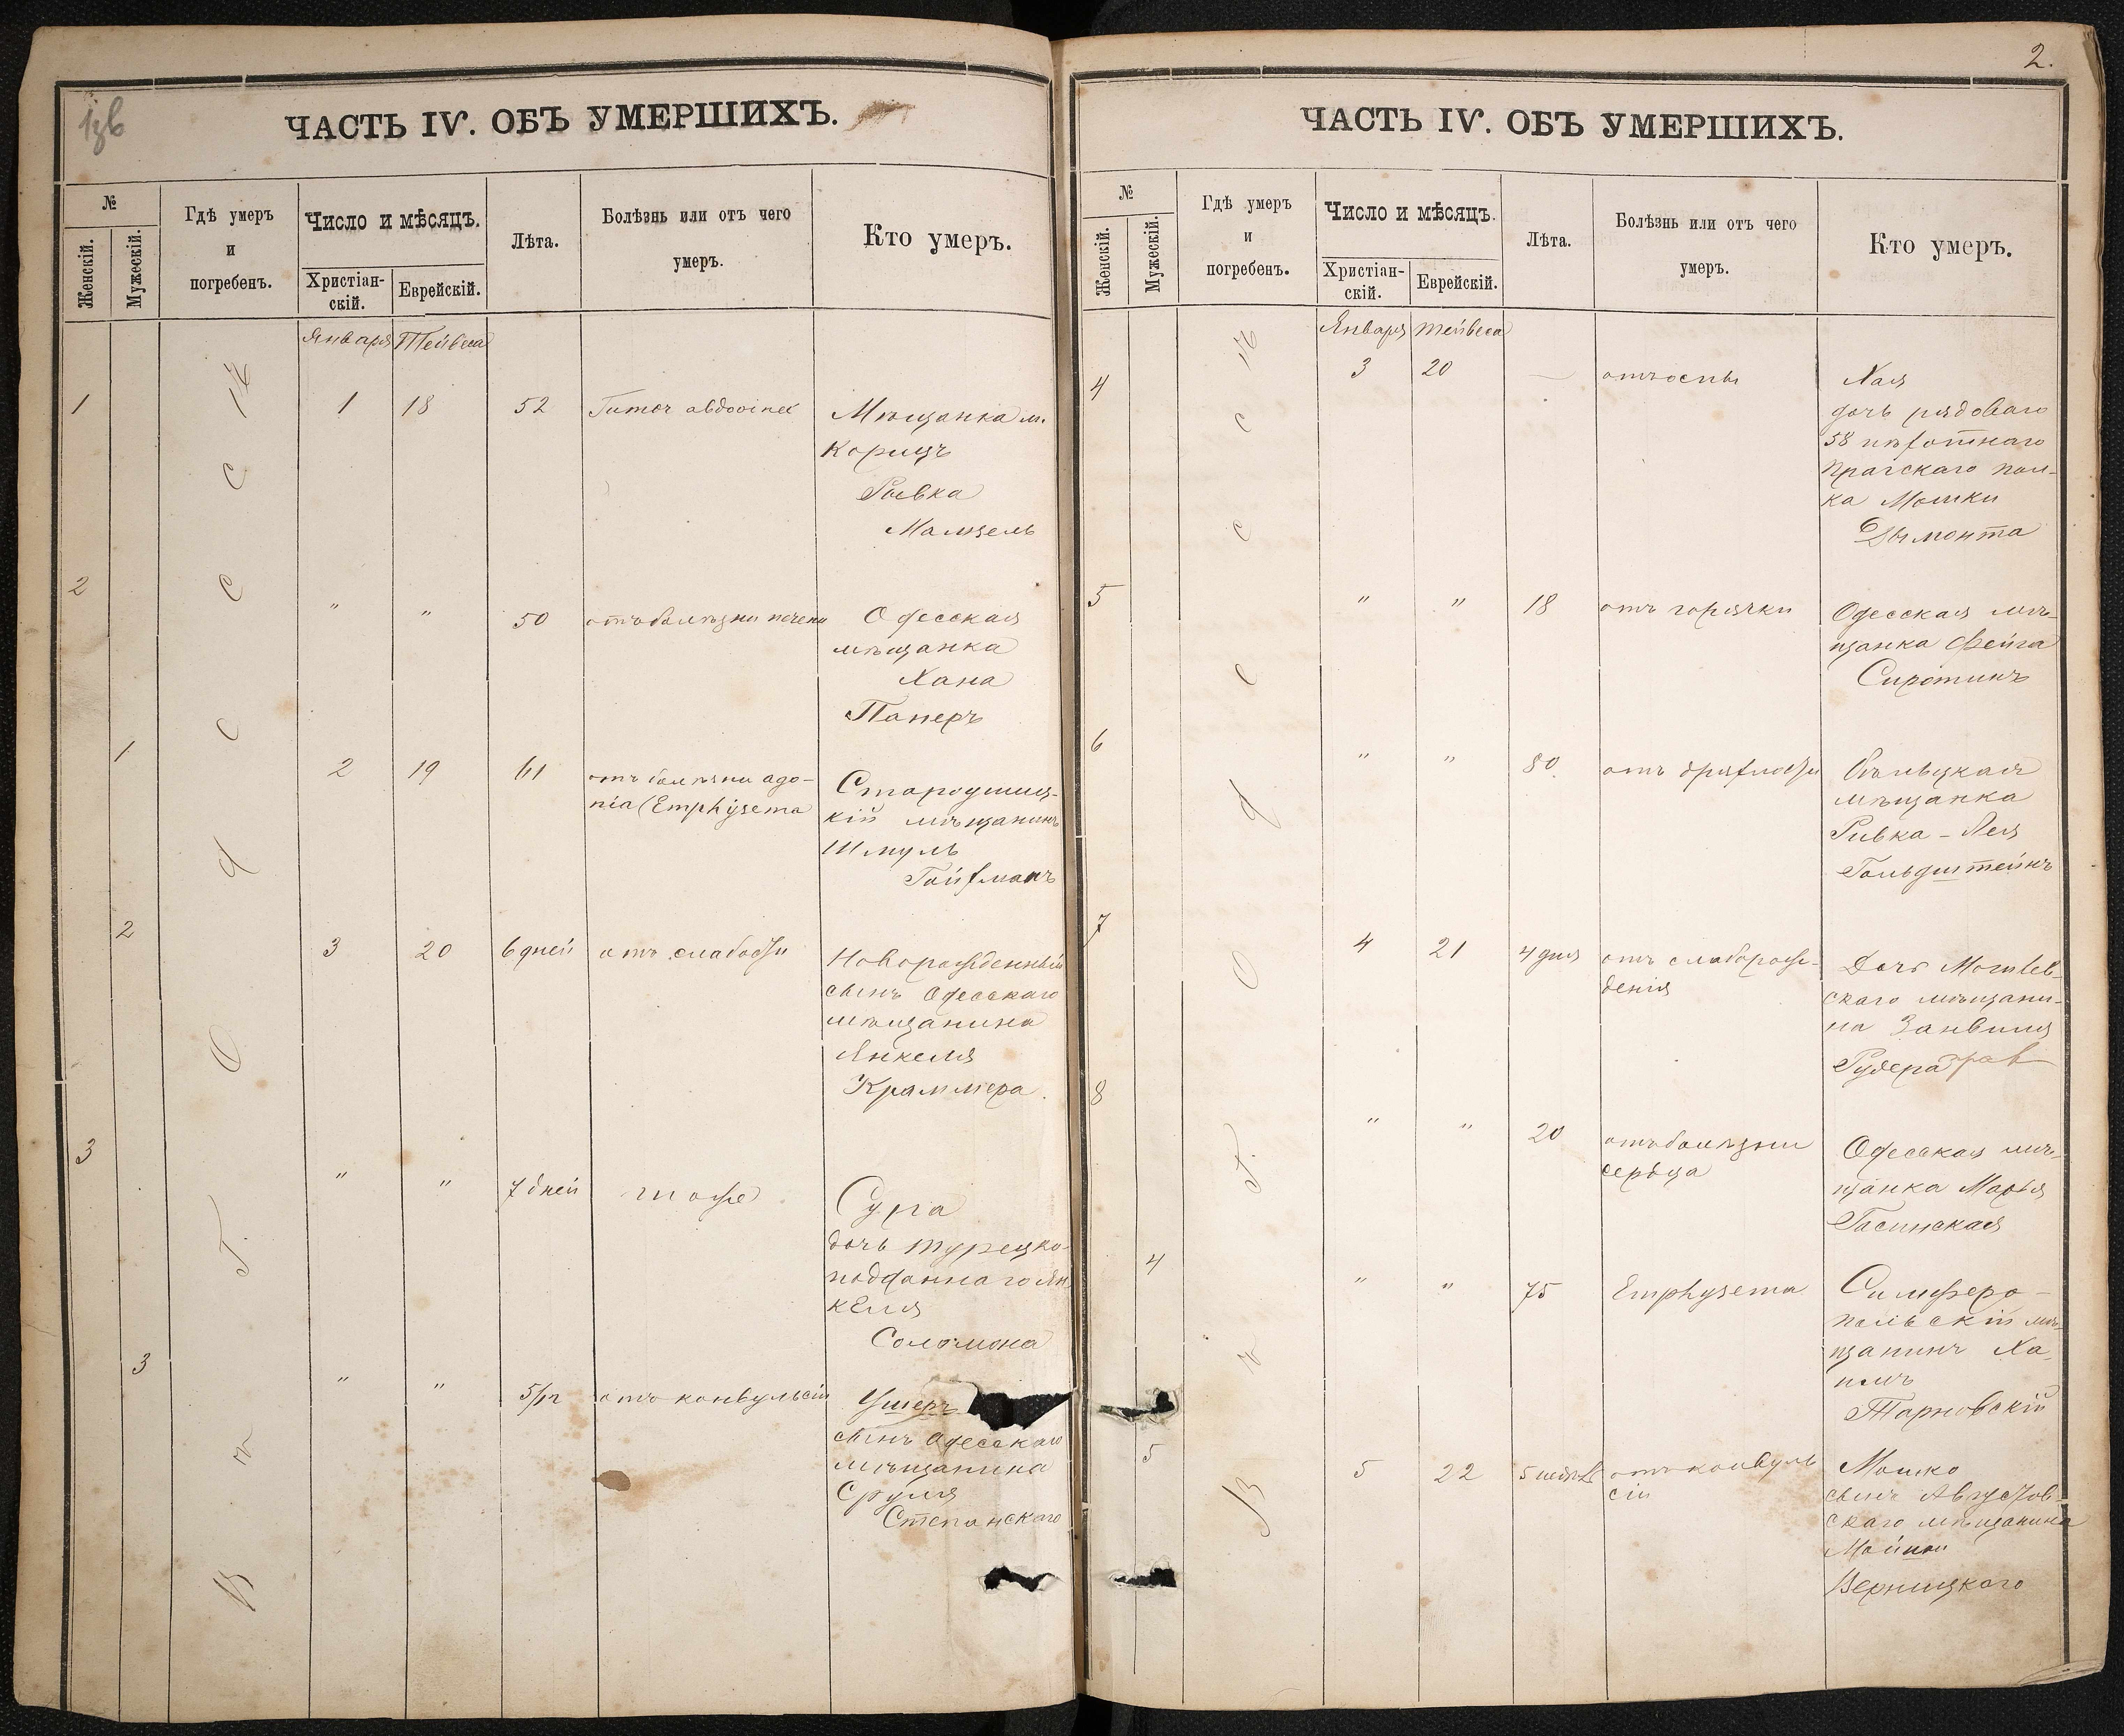 ЧАСТЬ IV. ОБЪ УМЕРШИХЪ.
№
Женскій.
Мужескій.
Гдѣ умеръ
и
погребенъ.
Число и мѣсяцъ.
Христіан-
скій.
Еврейскій.
Лѣта.
Болѣзнь или отъ чего
умеръ.
Кто умеръ.
Января Тейвеса
Въ г. Одессѣ
1 1 18 52 Tumor Мѣщанка м.
Корицъ
Ривка
Мамзель
2 " " 50 отъ болѣзни печени Одесская
мѣщанка
Хана
Паперъ
1 2 19 61 отъ болѣзни аго-
нія (Emphysema
Староушиц-
кій мѣщанинъ
Шмуль
Гойхманъ
2 3 20 6 дней отъ слабости Новорожденный
сынъ Одесскаго
мѣщанина
Янкеля
Краммера.
3 " " 7 дней тоже Сура
дочь турецко-
подданнаго Ян
келя
Соломона
3 " " 5/м отъ конвульсіи Ушеръ
сынъ Одесскаго
мѣщанина
Сруля
Степанскаго
2.
ЧАСТЬ IV. ОБЪ УМЕРШИХЪ.
№
Женскій.
Мужескій.
Гдѣ умеръ
и
погребенъ.
Число и мѣсяцъ.
Христіан-
скій.
Еврейскій.
Лѣта.
Болѣзнь или отъ чего
умеръ.
Кто умеръ.
Января Тейвеса
Въ г. Одессѣ
4 3 20 — отъ оспы Хая
дочь рядоваго
58 пѣхотнаго
Прагскаго пол-
ка Мошки
Дымонта
5 " " 18 отъ горячки Одесская мѣ-
щанка Фейга
Сиротинъ
6 " " 80 отъ дряхлости Бѣльцкая
мѣщанка
Ривка - Лея
Гольдштейнъ
7 4 21 4 дня отъ слаборож-
денія
Дочь Могилев-
скаго мѣщани-
на Занвиля
Рудера
8 " " 20 отъ болѣзни
сердца
Одесская мѣ-
щанка Марья
Гасинская
4 " " 75 Emphysema Симферо-
польскій мѣ-
щанинъ Ха-
имъ
Тарновскій
5 5 22 5 недѣль отъ конвуль
сіи
Мошко
сынъ Августов-
скаго мѣщанина
Верницкаго